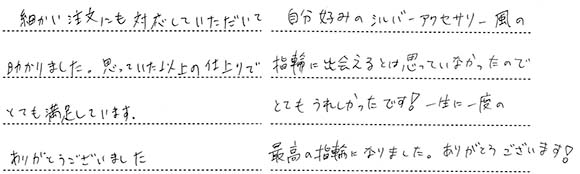 細かい注文にも対応していただいて
助かりました。思っていた以上の仕上りで
とても満足しています.
ありがとうございました
自分好みのシルバーアクセサリー風の
指輪に出会えるとは思っていなかったので
とてもうれしかったです!一生に一度の
最高の指輪になりました。ありがとうございます!